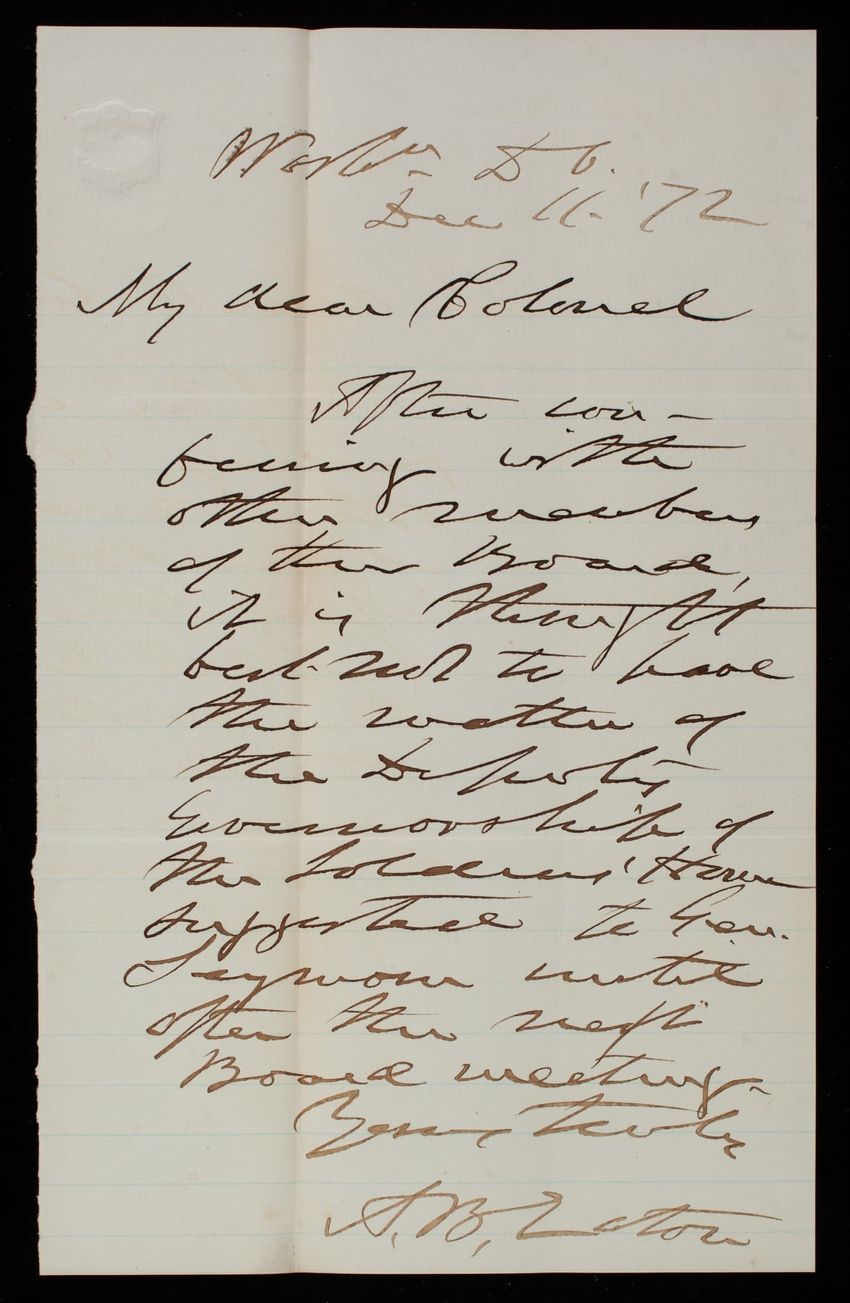 Washn. D C.
Dec 11. '72
My dear Colonel
After con-
ferring with
other members
of the Board,
it is thought
best not to have
the matter of
the Deputy
Governorship of
the Soldiers' Home
suggested to Gen.
Seymour until
after the next
Board meeting.
Yours truly
A. B. Eaton